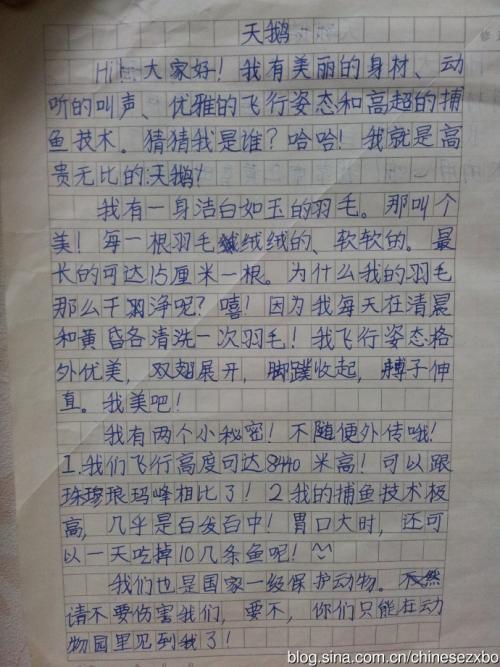 天鹅
Hi 大家好！我有美丽的身材、动
听的叫声、优雅的飞行姿态和高超的捕
鱼技术。猜猜我是谁？哈哈！我就是高
贵无比的天鹅！
我有一身洁白如玉的羽毛。那叫个
美！每一根羽毛绒绒的、软软的。最
长的可达15厘米一根。为什么我的羽毛
那么干净呢？嘻！因为我每天在清晨
和黄昏各清洗一次羽毛！我飞行姿态格
外优美，双翅展开，脚蹼收起，脖子伸
直。我美吧！
我有两个小秘密！不随便外传哦！
1.我们飞行高度可达8440米高！可以跟
珠穆琅玛峰相比了！2我的捕鱼技术极
高，几乎是百发百中！胃口大时，还可
以一天吃掉10几条鱼呢！~
我们也是国家一级保护动物。
请不要伤害我们，要不，你们只能在动
物园里见到我了！
blog.sina.com.cn/chinesezxbo